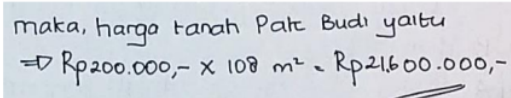 maka, harga tanah Pak Budi yaitu
⇒ Rp200.000,- x 108 m² = Rp21.600.000,-